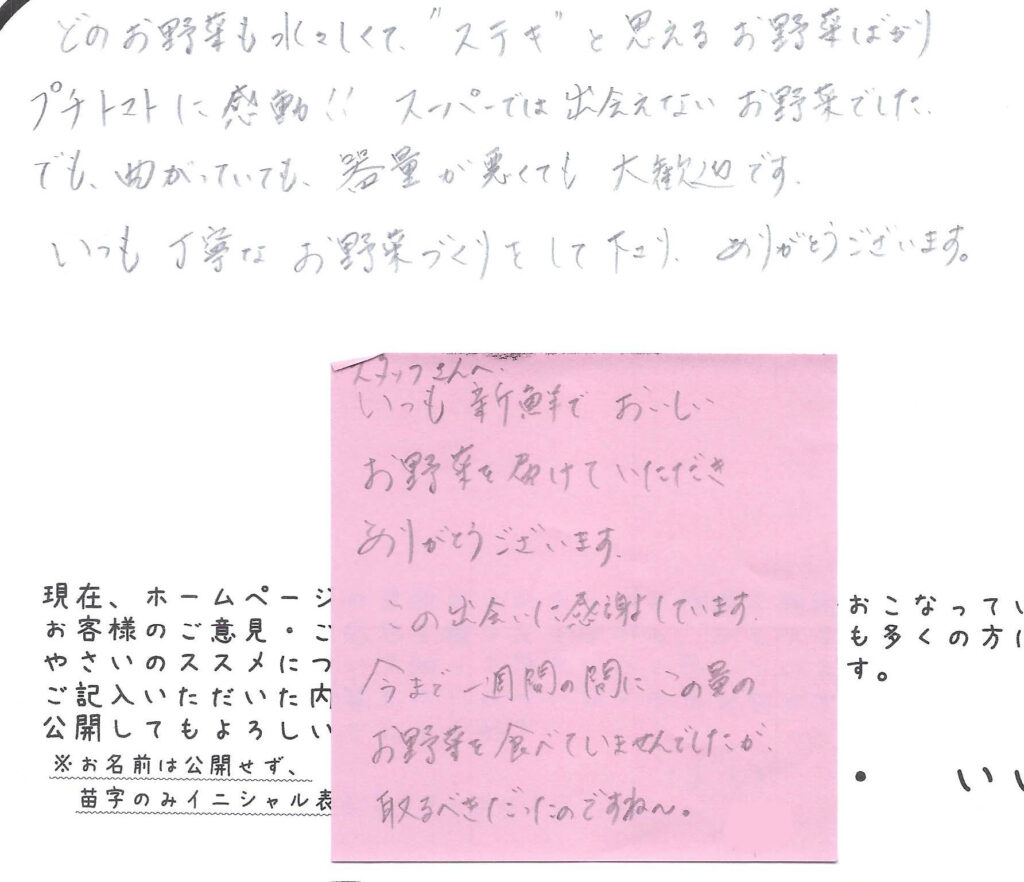 どのお野菜も水々しくて、"ステキ"と思えるお野菜ばかり
プチトマトに感動!! スーパーでは出会えないお野菜でした、
でも、曲がっていても、器量が悪くても 大歓迎です。
いつも 丁寧な お野菜づくりをして下さり、ありがとうございます。
スタッフさんへ、
いつも 新鮮で おいしい
お野菜を届けていただき
ありがとうございます。
この出会いに感謝しています。
今まで 一週間の間に この量の
お野菜を食べていませんでしたが、
取るべきだったのですね〜。
現在、ホームページ
お客様のご意見・ご
やさいのススメにつ
ご記入いただいた内
公開してもよろしい
※お名前は公開せず、
苗字のみイニシャル表
おこなってい
も多くの方に
す。
・ いい